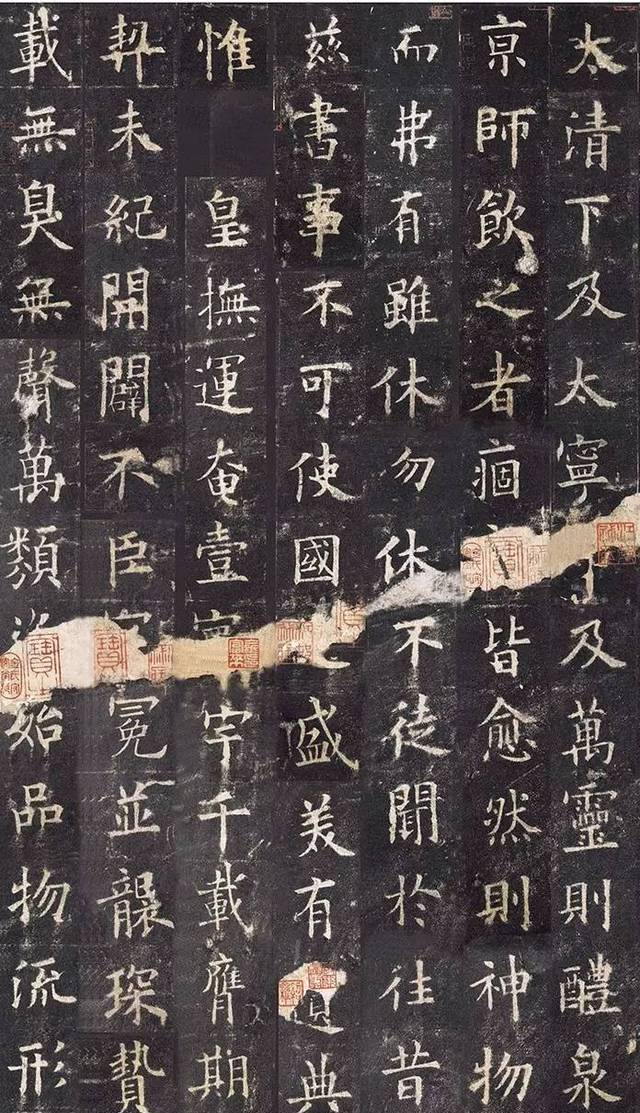 太清下及太寧及萬靈則醴泉
京師飲之者痼皆愈然則神物
而弗有雖休勿休不徒聞於往昔
茲書事不可使國盛美有遺典
惟 皇撫運奄壹寰宇千載膺期
契未紀開闢不臣冕並襲琛贄
載無臭無聲萬類始品物流形